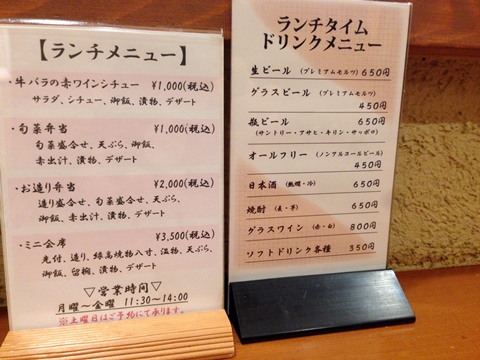 【ランチメニュー】
・牛バラの赤ワインシチュー ¥1,000(税込)
サラダ、シチュー、御飯、漬物、デザート
・旬菜弁当 ¥1,000(税込)
旬菜盛合せ、天ぷら、御飯、
赤出汁、漬物、デザート
・お造り弁当 ¥2,000(税込)
造り盛合せ、旬菜盛合せ、天ぷら、
御飯、赤出汁、漬物、デザート
・ミニ会席 ¥3,500(税込)
先付、造り、縁高焼物八寸、温物、天ぷら、
御飯、留椀、漬物、デザート
▽営業時間▽
月曜～金曜 11:30～14:00
※土曜日はご予約にて承ります。
ランチタイム
ドリンクメニュー
生ビール (プレミアムモルツ) 650円
グラスビール (プレミアムモルツ)
450円
瓶ビール 650円
(サントリー・アサヒ・キリン・サッポロ)
オールフリー (ノンアルコールビール)
450円
日本酒 (熱燗・冷) 650円
焼酎 (麦・芋) 650円
グラスワイン (赤・白) 800円
ソフトドリンク各種 350円